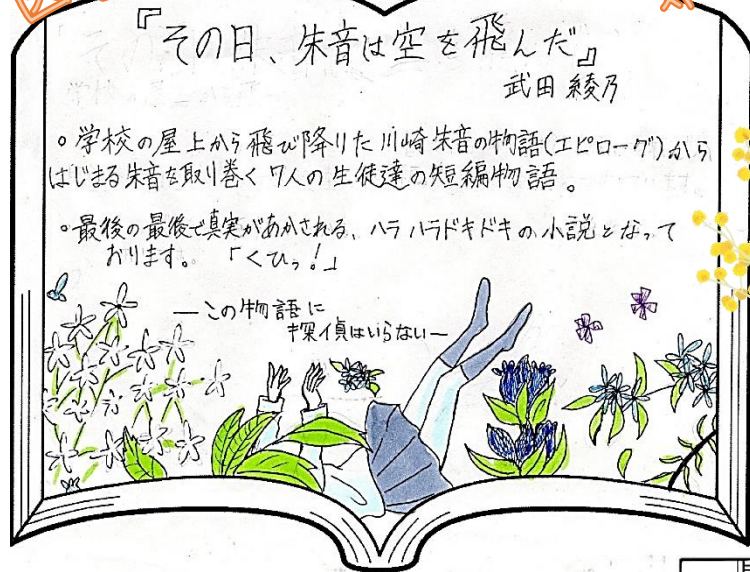 『その日、朱音は空を飛んだ』
武田 綾乃
。学校の屋上から飛び降りた川崎朱音の物語(エピローグ)から
はじまる朱音を取り巻く7人の生徒達の短編物語。
。最後の最後で真実があかされる、ハラハラドキドキの小説となって
おります。 「くひっ!」
―この物語に
探偵はいらない―